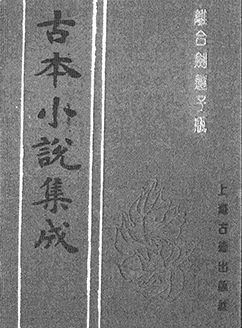 離合劍蓮子瓶
古本小說集成
上海古籍出版社